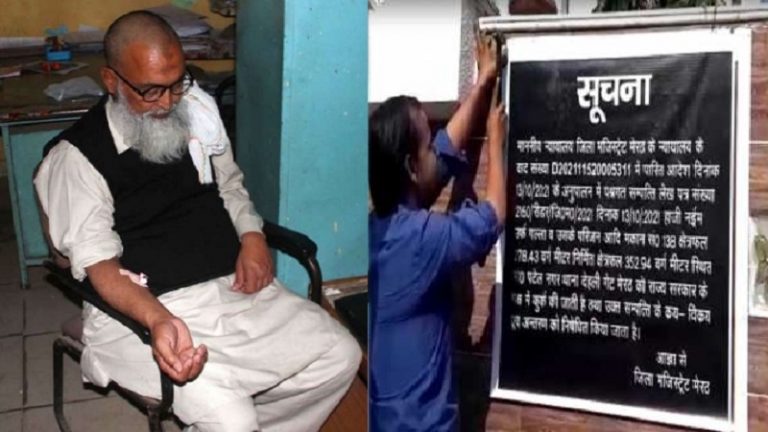 सूचना
माननीय न्यायालय जिला मजिस्ट्रेट मेरठ के न्यायालय के
वाद संख्या D202111520005311 में पारित आदेश दिनांक
13/10/2021 के अनुपालन में प्रश्नगत सम्पत्ति लेख पत्र संख्या
दिनांक 13/10/2021 हाजी नईम
उर्फ गल्ला व उसके परिजन आदि मकान स0 138 क्षेत्रफल
278.43 वर्ग मीटर निर्मित क्षेत्रफल 352.94 वर्ग मीटर स्थित
पटेल नगर थाना देहली गेट मेरठ को राज्य सरकार के
में कुर्क की जाती है तथा उक्त सम्पत्ति के क्रय- विक्रय
अन्तरण को निषेधित किया जाता है।
आज्ञा से
जिला मजिस्ट्रेट मेरठ